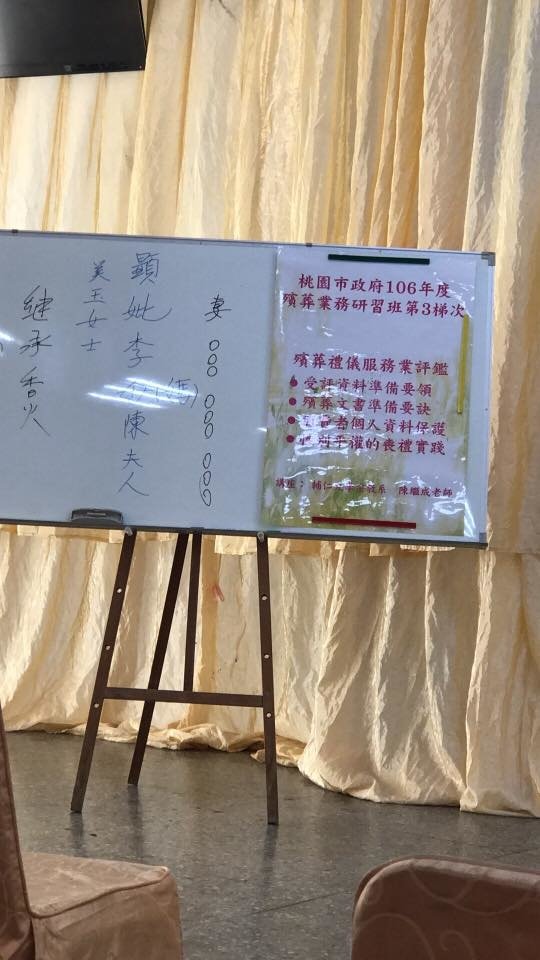 桃園市政府106年度
殯葬業務研習班第3梯次
殯葬禮儀服務業評鑑
● 受評資料準備要領
● 殯葬文書準備要訣
● 者個人資料保護
● 平權的喪禮實踐
講座： 輔仁 系 陳繼成老師
妻 ○○○ ○○○ ○○○○
顯妣李 (媽)陳夫人
美玉女士
継承香火